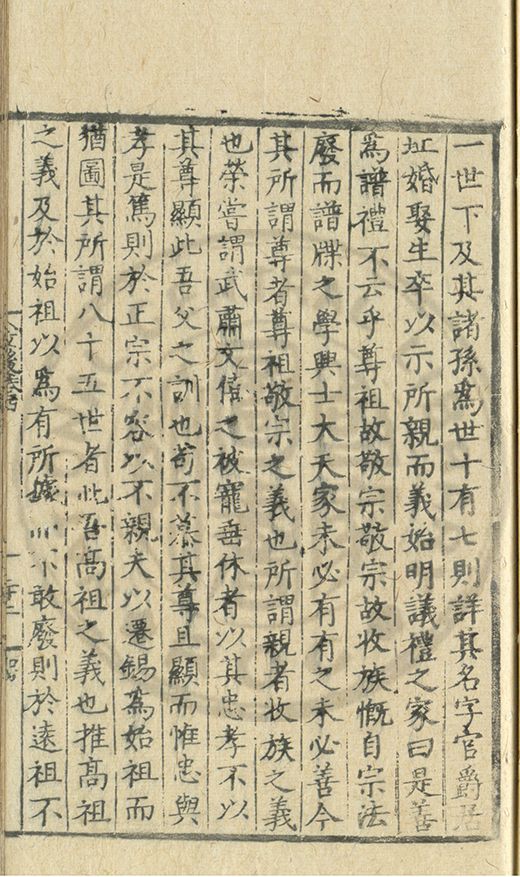 一世下及其諸孫爲世十有七則詳其名字官爵居
址婚娶生卒以示所親而義始明議禮之家曰是善
爲譜禮不云乎尊祖故敬宗敬宗故收族慨自宗法
廢而譜牒之學興士大夫家未必有有之未必善今
其所謂尊者尊祖敬宗之義也所謂親者收族之義
也榮嘗謂武肅文僖之被寵垂休者以其忠孝不以
其尊顯此吾父之訓也苟不慕其尊且顯而惟忠與
孝是篤則於正宗不容以不親夫以遷錫爲始祖而
猶圖其所謂八十五世者此吾高祖之義也推高祖
之義及於始祖以爲有所據 不敢廢則於遠祖不